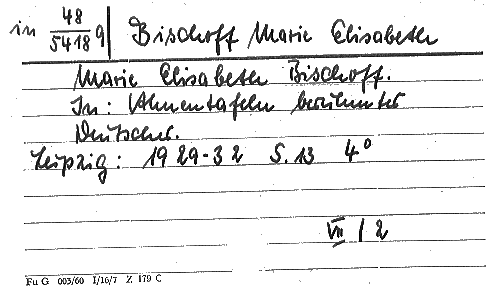 in 48/5418 q Bischoff Marie Elisabeth
Marie Elisabeth Bischoff.
In: Ahnentafeln berühmter
Deutscher.
Leipzig: 1929-32 S. 13 4°
VII / 2
Fu G 003/60 I/16/7 Z 179 C